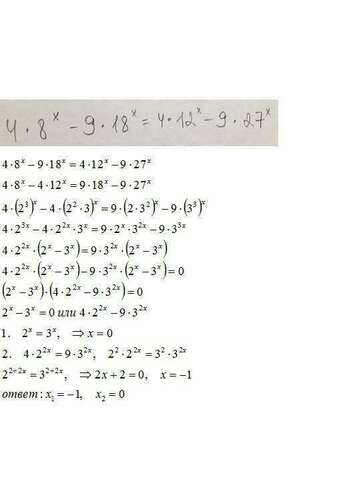 4·8ˣ − 9·18ˣ = 4·12ˣ − 9·27ˣ
4·8ˣ − 9·18ˣ = 4·12ˣ − 9·27ˣ
4·8ˣ − 4·12ˣ = 9·18ˣ − 9·27ˣ
4·(2³)ˣ − 4·(2²·3)ˣ = 9·(2·3²)ˣ − 9·(3³)ˣ
4·2³ˣ − 4·2²ˣ·3ˣ = 9·2ˣ·3²ˣ − 9·3³ˣ
4·2²ˣ·(2ˣ − 3ˣ) = 9·3²ˣ·(2ˣ − 3ˣ)
4·2²ˣ·(2ˣ − 3ˣ) − 9·3²ˣ·(2ˣ − 3ˣ) = 0
(2ˣ − 3ˣ)·(4·2²ˣ − 9·3²ˣ) = 0
2ˣ − 3ˣ = 0 или 4·2²ˣ − 9·3²ˣ
1. 2ˣ = 3ˣ, ⇒ x = 0
2. 4·2²ˣ = 9·3²ˣ, 2²·2²ˣ = 3²·3²ˣ
2²⁺²ˣ = 3²⁺²ˣ, ⇒ 2x + 2 = 0, x = −1
ответ: x₁ = −1, x₂ = 0